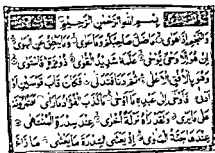 بسم الله الرحمن الرحيم
والنجم اذا هوى ما ضل صاحبكم وما غوى وما ينطق عن الهوى
ان هو الا وحي يوحى علمه شديد القوى ذو مرة فاستوى
وهو بالافق الاعلى ثم دنا فتدلى فكان قاب قوسين او
ادنى فاوحى الى عبده ما اوحى ما كذب الفؤاد ما راى افتمارونه
على ما يرى ولقد راه نزلة اخرى عند سدرة المنتهى
عندها جنة الماوى اذ يغشى السدرة ما يغشى ما زاغ